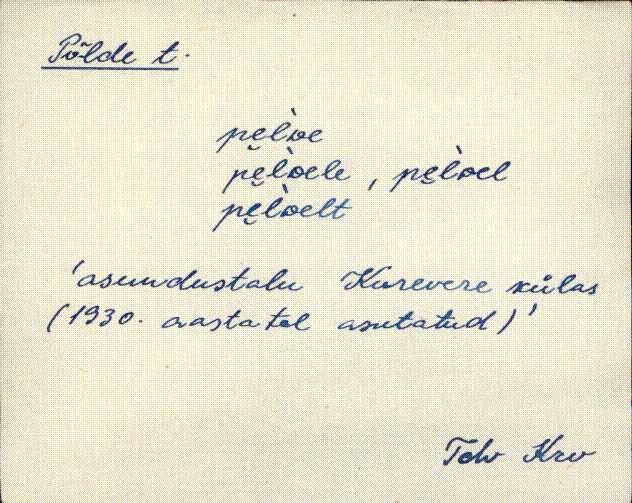 Põlde t.
pe̬l̀ᴅe
pe̬l̀ᴅele, pe̬l̀ᴅel
pe̬l̀ᴅelt
'asundustalu Kurevere külas
(1930. aastatel asutatud)'
Tdv Krv